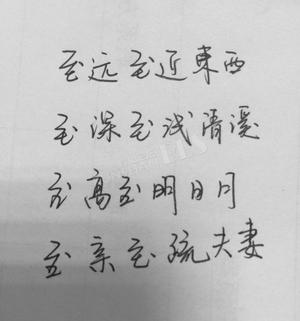 至远至近東西
至深至浅清溪
至高至明日月
至亲至疏夫妻